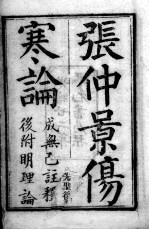 張仲景傷
寒論
成無己註釋
後附明理論